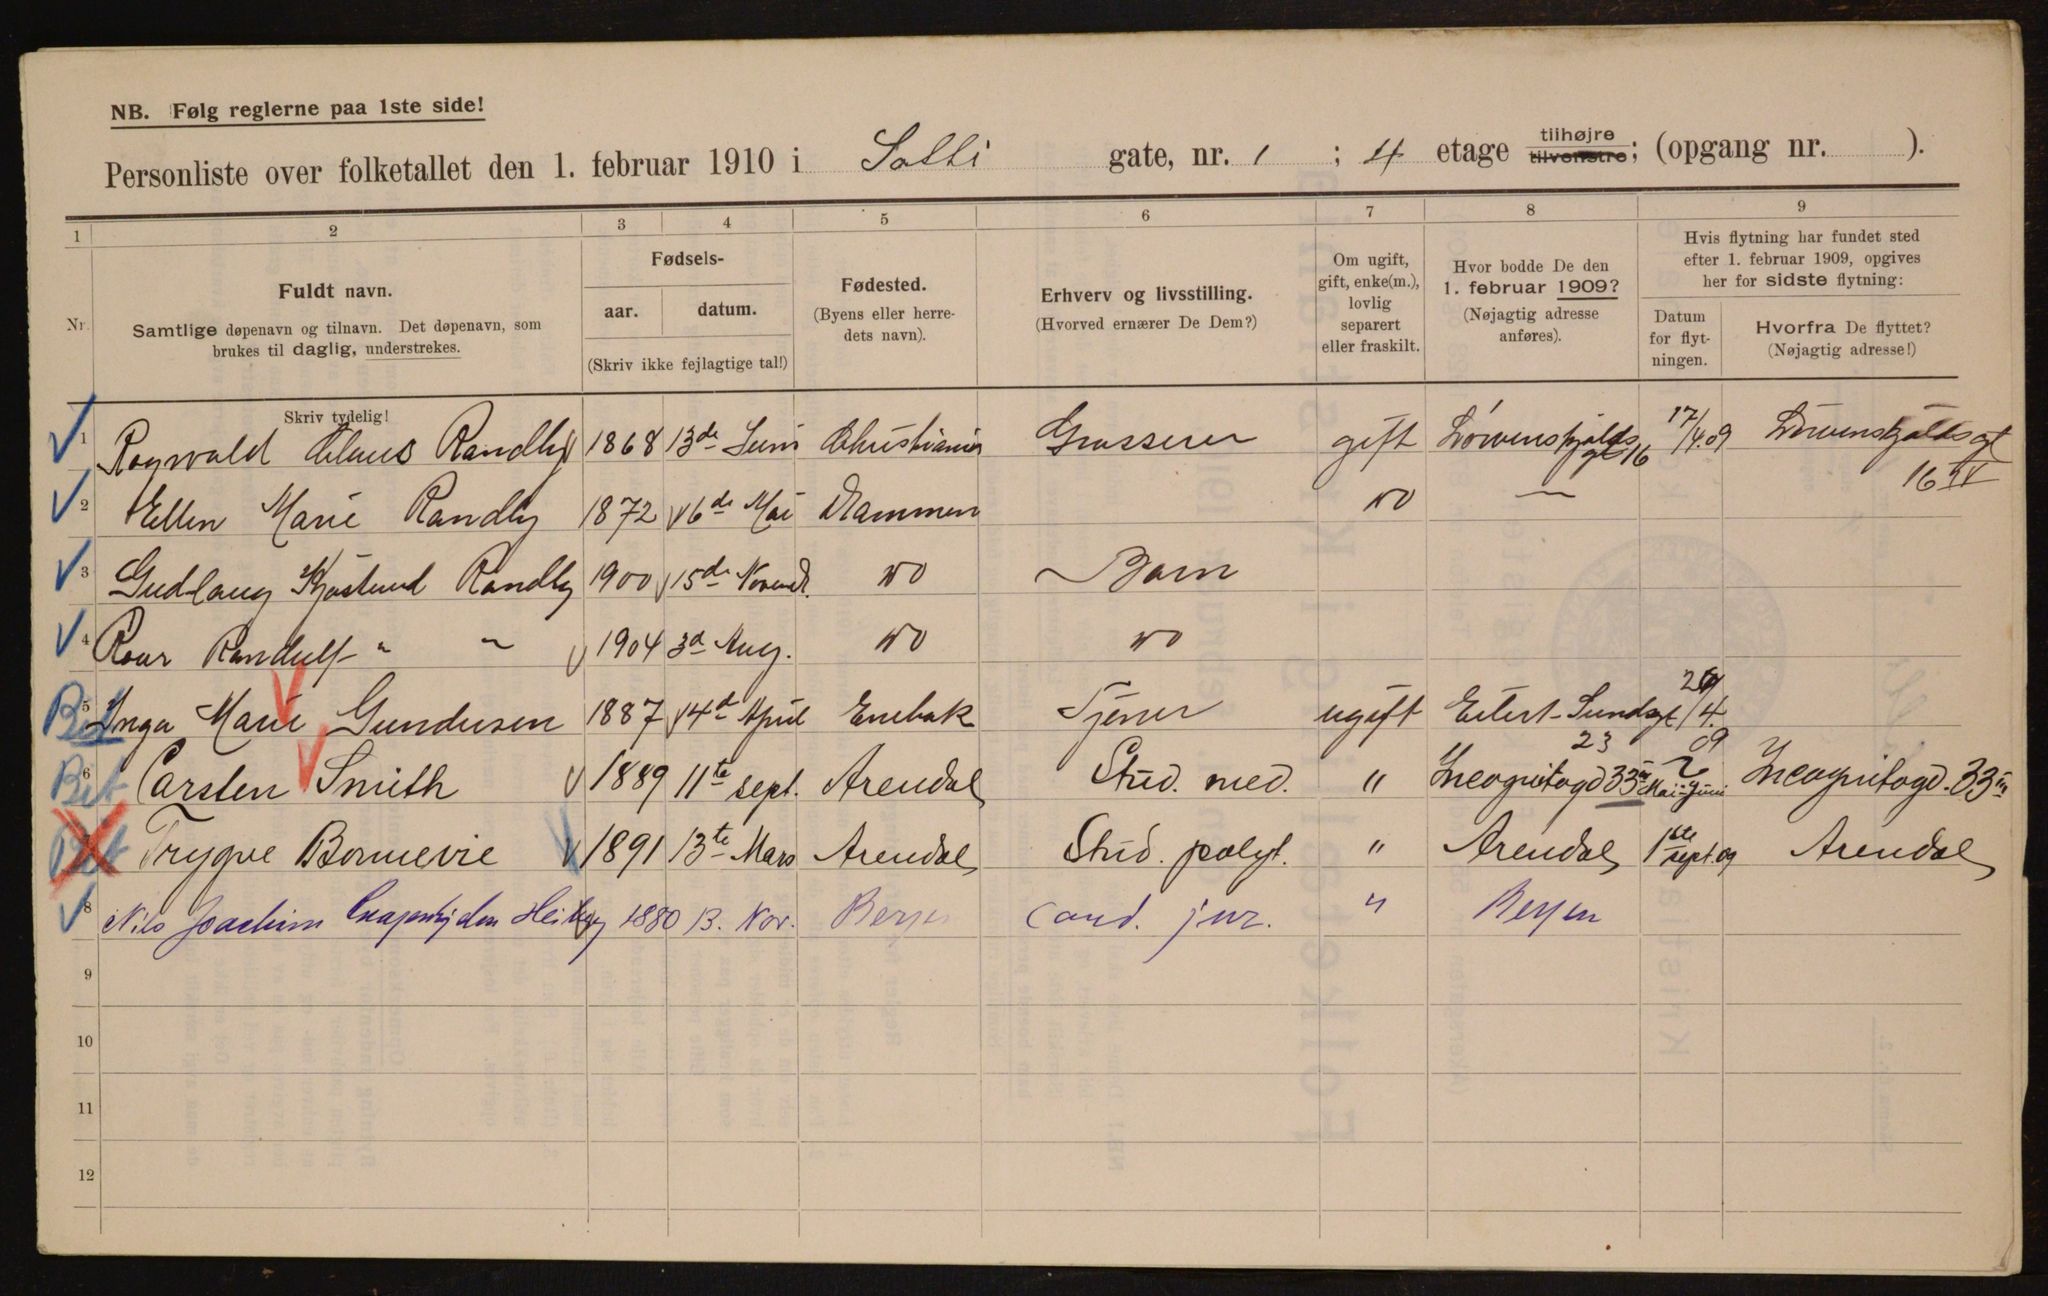 NB. Følg reglerne paa 1ste side!
Personliste over folketallet den 1. februar 1910 i Solli gate, nr. 1 ; 4 etage tilhøjre tilvenstre; (opgang nr. ).
1 2 3 4 5 6 7 8 9
Nr.
Fuldt navn.
Samtlige døpenavn og tilnavn. Det døpenavn, som
brukes til daglig, understrekes.
Skriv tydelig!
Fødsels-
aar. datum.
(Skriv ikke fejlagtige tal!)
Fødested.
(Byens eller herre-
dets navn).
Erhverv og livsstilling.
(Hvorved ernærer De Dem?)
Om ugift,
gift, enke(m.),
lovlig
separert
eller fraskilt.
Hvor bodde De den
1. februar 1909?
(Nøjagtig adresse
anføres).
Hvis flytning har fundet sted
efter 1. februar 1909, opgives
her for sidste flytning:
Datum
for flyt-
ningen.
Hvorfra De flyttet?
(Nøjagtig adresse!)
1 Ragwald Claus Randby 1868 13de Juni Christiania Grosserer gift Løvenskjolds gt 16 17/4.09 Løvenskjolds gt 16 IV
2 Ellen Marie Randby 1872 6de Mai Drammen do —
3 Gudlaug Randby 1900 15de Novemb. do Barn
4 Roar Randulf " " 1904 3d Aug. do do
5 Inga Marie Gundersen 1887 4d April Enebak Tjener ugift Eilert Sundsgt 23 /4. 09
Bet 6 Carsten Smith 1889 11te sept. Arendal Stud. med. " Incognitogd 33 III Mai-Juni Incognitogd. 33 III
Bet Trygve Bonnevie 1891 13te Mars Arendal Stud. polyt. " Arendal 1ste sept. 09 Arendal
8 Nils Joachim den Heiberg 1880 13. Nov. Bergen Cand. jur. " Bergen
9
10
11
12